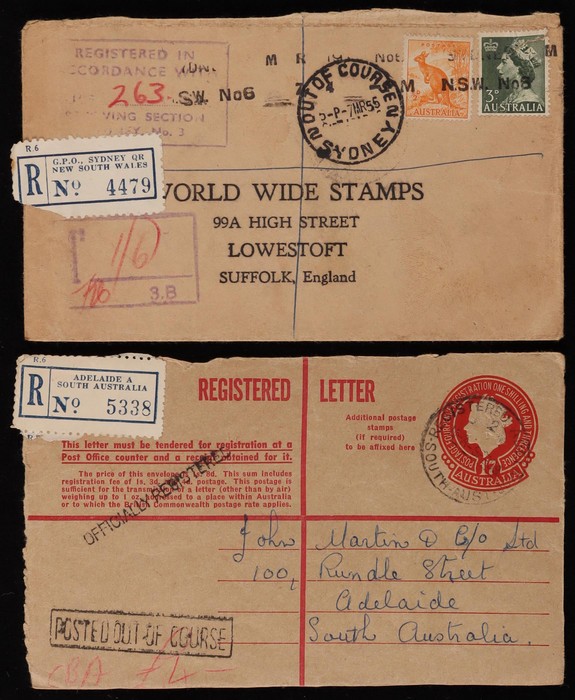 REGISTERED IN
CCORDANCE WITH
263
VING SECTION
No. 3
S.W. No6
M R
No6
M
N.S.W. No8
OUT OF COURSE
7MR56
SYDNEY
AUSTRALIA
3D
AUSTRALIA
R.6
R
G.P.O., SYDNEY QR
NEW SOUTH WALES
No 4479
WORLD WIDE STAMPS
99A HIGH STREET
LOWESTOFT
SUFFOLK, England
1/6
3.B
R.6
R
ADELAIDE A
SOUTH AUSTRALIA
No 5338
REGISTERED LETTER
This letter must be tendered for registration at a
Post Office counter and a receipt obtained for it.
The price of this envelope
This sum includes
registration fee of 1s. 3d.
postage. This postage is
sufficient for the transmis
a letter (other than by air)
weighing up to 1 oz.
sed to a place within Australia
or to which the B
Commonwealth postage rate applies.
OFFICIALLY REGISTERED
Additional postage
stamps
(if required)
to be affixed here
POSTAGE FOURPENCE REGISTRATION ONE SHILLING AND THREEPENCE
1'7
AUSTRALIA
REGISTERED
SOUTH AUS
John Martin & Co Ltd
100, Rundle Street
Adelaide
South Australia.
POSTED OUT OF COURSE